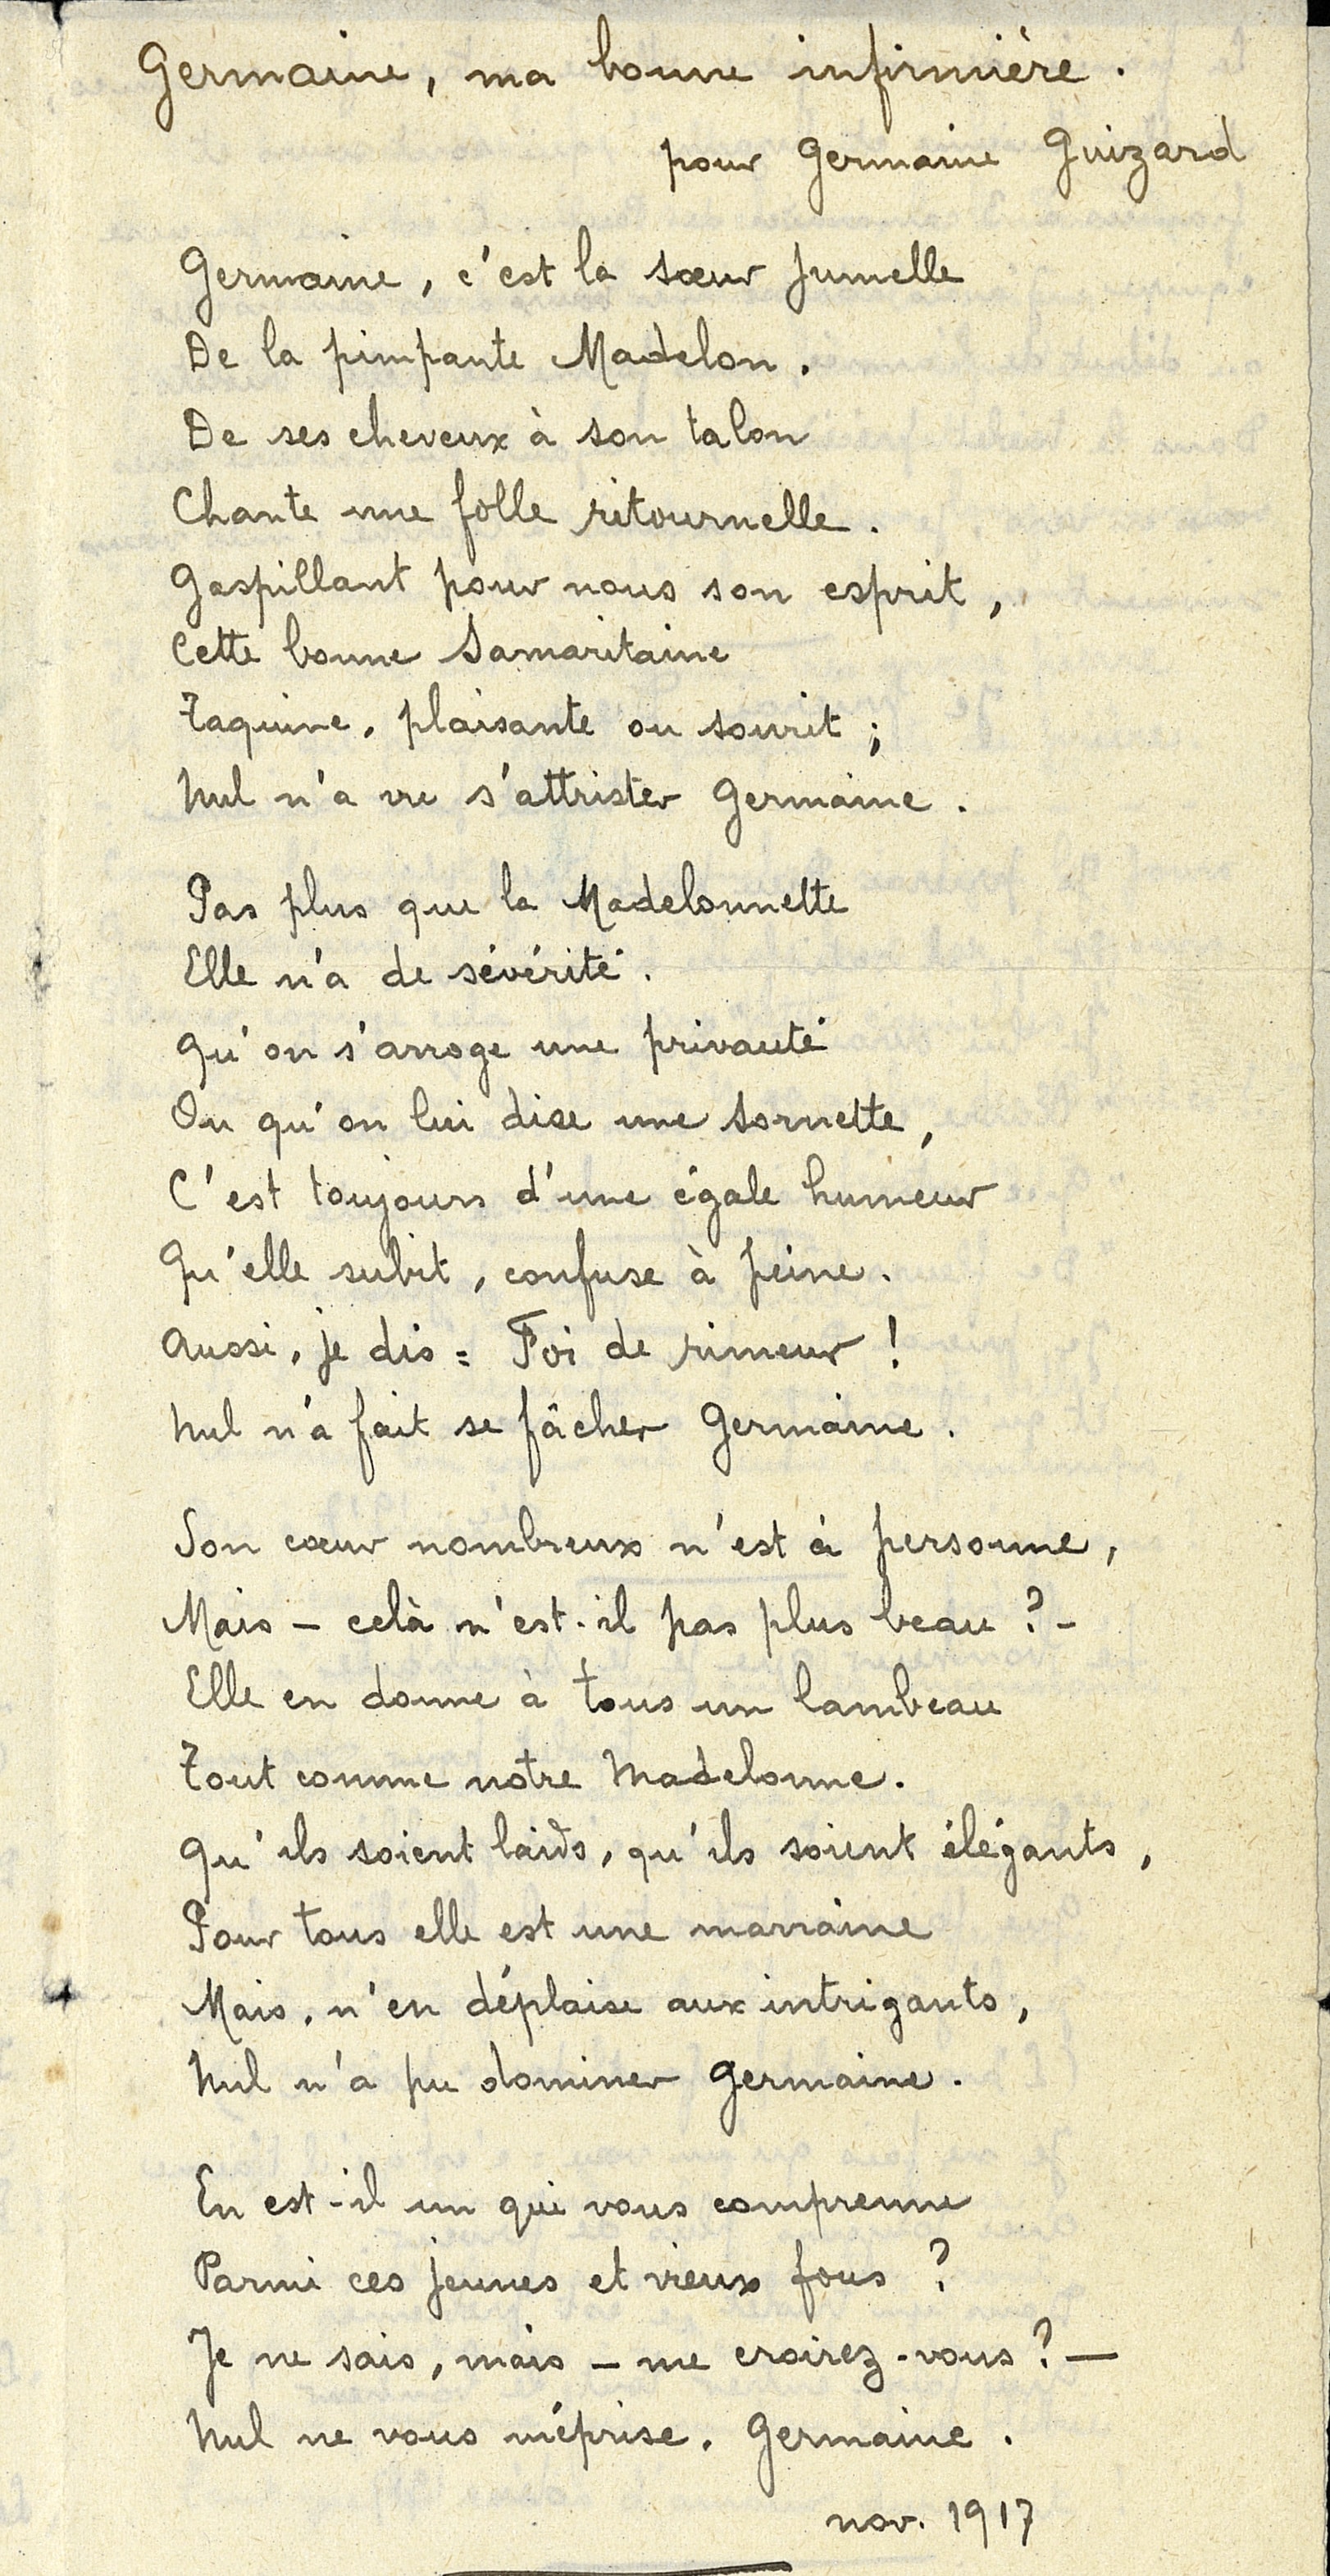 Germaine, ma bonne infirmière.
pour Germaine Guizard
Germaine, c'est la sœur jumelle
De la pimpante Madelon.
De ses cheveux à son talon
Chante une folle ritournelle.
Gaspillant pour nous son esprit,
Cette bonne Samaritaine
Taquine, plaisante ou sourit ;
Nul n'a vu s'attrister Germaine.
Pas plus que la Madelonnette
Elle n'a de sévérité.
Qu'on s'arroge une privauté
Ou qu'on lui dise une sornette,
C'est toujours d'une égale humeur
Qu'elle subit, confuse à peine.
Aussi, je dis : Foi de rimeur !
Nul n'a fait se fâcher Germaine.
Son cœur nombreux n'est à personne,
Mais – celà n'est-il pas plus beau ? –
Elle en donne à tous un lambeau
Tout comme notre Madelonne.
Qu'ils soient laids, qu'ils soient élégants,
Pour tous elle est une marraine
Mais, n'en déplaise aux intrigants,
Nul n'a pu dominer Germaine.
En est-il un qui vous comprenne
Parmi ces jeunes et vieux fous ?
Je ne sais, mais – me croirez-vous ? –
Nul ne vous méprise, Germaine.
nov. 1917